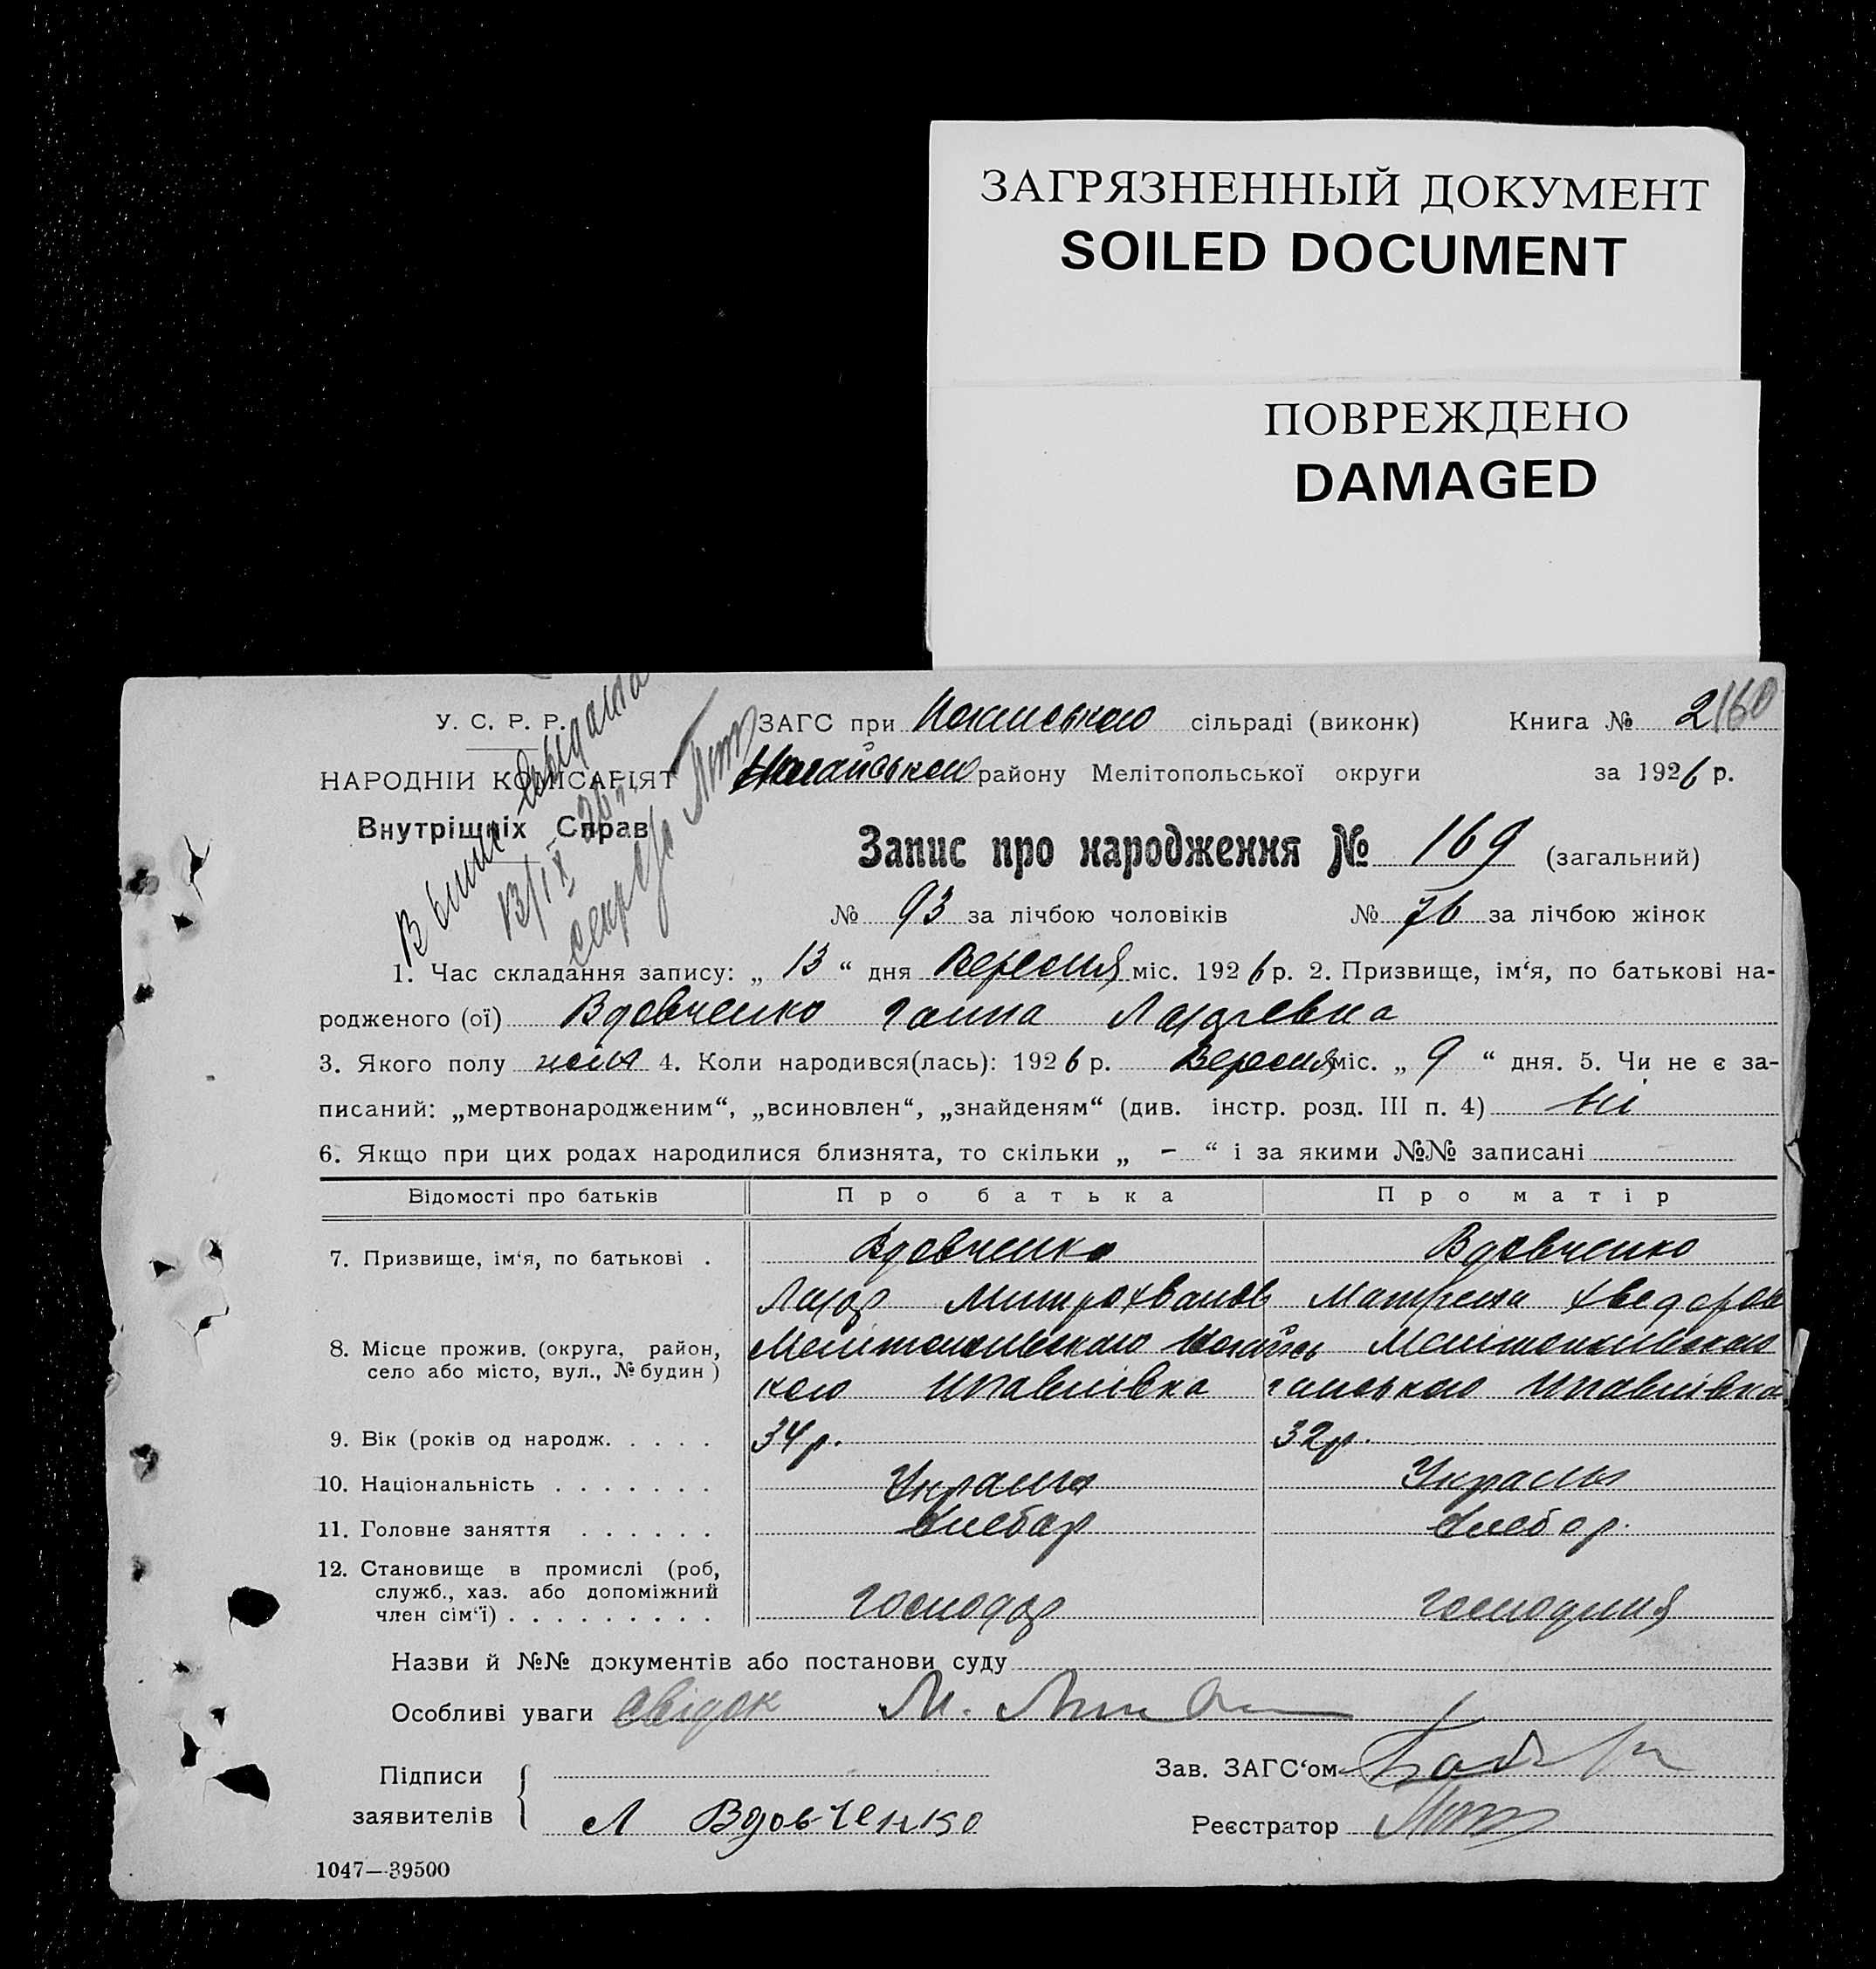 ЗАГРЯЗНЕННЫЙ ДОКУМЕНТ
SOILED DOCUMENT
ПОВРЕЖДЕНО
DAMAGED
У. С. Р. Р.
НАРОДНІЙ КОМІСАРІЯТ
Внутрішніх Справ
13/IX 26 г.
ЗАГС при сільраді (виконк) Книга № 2 160
Ногайського району Мелітопольської округи за 1926 р.
Запис про народження № 169 (загальний)
№ 93 за лічбою чоловіків № 76 за лічбою жінок
1. Час складання запису: „ 13 “ дня Вересня міс. 1926 р. 2. Призвище, ім‘я, по батькові на-
родженого (ої) Вдовченко Ганна Лазаревна
3. Якого полу жін 4. Коли народився(лась): 1926 р. Вересня міс. „ 9 “ дня. 5. Чи не є за-
писаний: „мертвонародженим“, „всиновлен“, „знайденям“ (див. інстр. розд. III п. 4) ні
6. Якщо при цих родах народилися близнята, то скільки „ - “ і за якими №№ записані
Відомості про батьків Про батька Про матір
7. Призвище, ім‘я, по батькові . Вдовченко Вдовченко
Лазар Митрохванов Матрена Хведоров
8. Місце прожив. (округа, район,
село або місто, вул., № будин )
Мелітопольского Ногайсь Мелітопольского
кого
9. Вік (років од народж. . . . . 34 р. 32 р.
10. Національність . . . . . . . Україн Україн
11. Головне заняття . . . . . . Хлебор Хлебор.
12. Становище в промислі (роб,
служб., хаз. або допоміжний
член сім‘ї) . . . . . . . . . Господар Господиня
Назви й №№ документів або постанови суду
Особливі уваги Свідок М.
Підписи
заявителів
Л Вдовченко
Зав. ЗАГС‘ом
Реєстратор
1047—39500